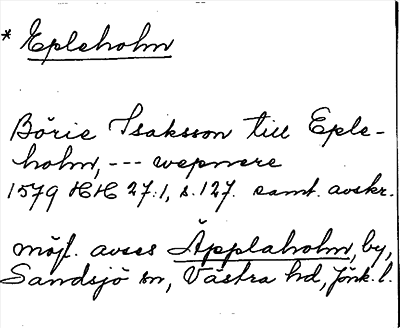 * Epleholm
Börie Isaksson till Eple-
holm, --- wepnere
1579 HH 27:1, s. 127. samt. avskr.
möjl. avses Äpplaholm, by,
Sandsjö sn, Västra hd, Jönk. l.